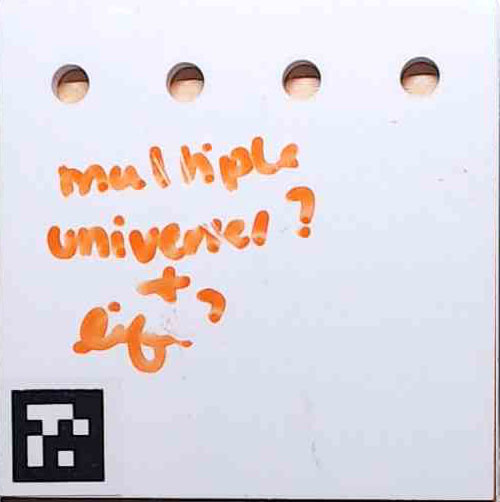 multiple
universes?
+
life?